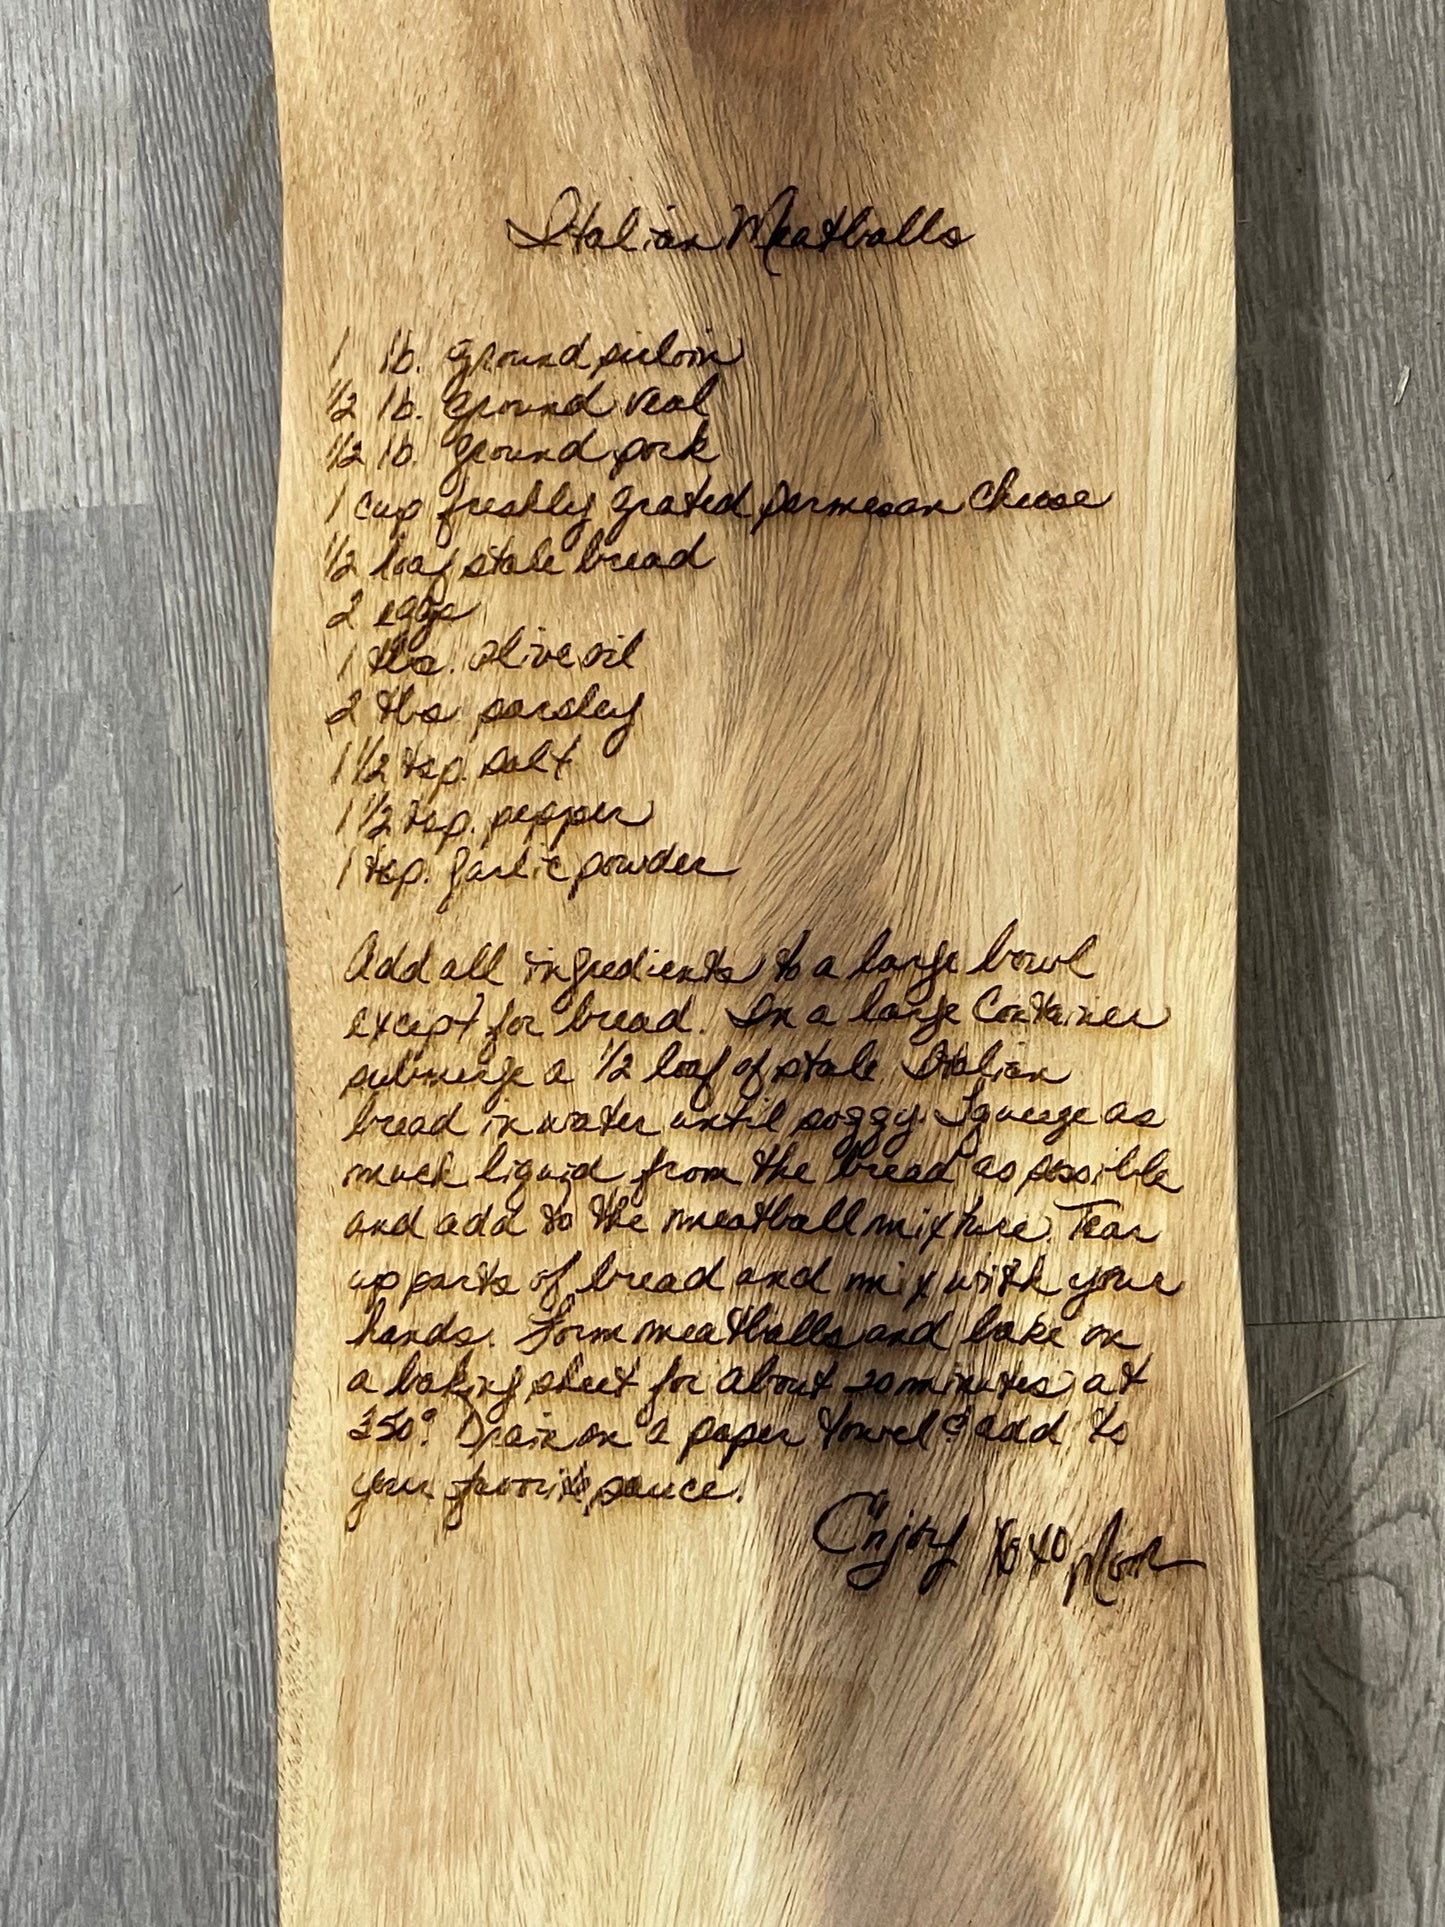 Italian Meatballs
1 lb. ground sirloin
1/2 lb. ground veal
1/2 lb. ground pork
1 cup freshly grated parmesan cheese
1/2 loaf stale bread
2 eggs
1 tbs. olive oil
2 tbs. parsley
1 1/2 tsp. salt
1 1/2 tsp. pepper
1 tsp. garlic powder
Add all ingredients to a large bowl
except for bread. In a large container
submerge a 1/2 loaf of stale Italian
bread in water until soggy. Squeeze as
much liquid from the bread as possible
and add to the meatball mixture. Tear
up parts of bread and mix with your
hands. Form meatballs and bake on
a baking sheet for about 20 minutes at
350°. Drain on a paper towel & add to
your favorite sauce.
Enjoy XOXO Mom